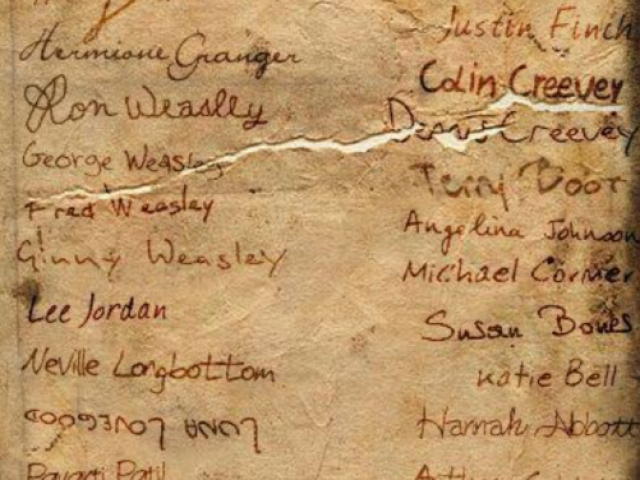 Hermione Granger
Ron Weasley
George Weasley
Fred Weasley
Ginny Weasley
Lee Jordan
Neville Longbottom
LUNA LOVEGOOD
Parvati Patil
Justin Finch
Colin Creevey
Dennis Creevey
Terry Boot
Angelina Johnson
Michael Corner
Susan Bones
Katie Bell
Hannah Abbott